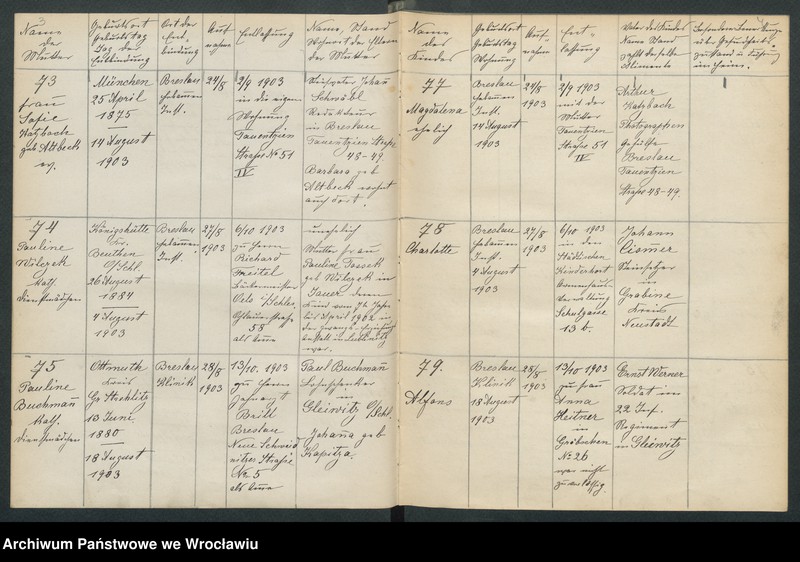 Name
der
Mutter
Geburtsort
Geburtstag
Tag der
Entbindung
Ort der
Ent,
bindung
Auf
nahme
Entlassung
Name, Stand
Wohnort der Eltern
der Mutter
Name
des
Kindes
Geburtsort
Geburtstag
Auf-
nahme
Ent-
lassung
Vater des Kindes
Name Stand
73
Frau
Sofie
Katzbach
geb. Altbeck
ev.
München
25 April
1875
14 August
1903
Breslau
Hebammen
Inst.
24/8
2/9 1903
in die eigene
Wohnung
Tauentzien
Straße No 51
IV
Johann
Redakteur
in Breslau
Tauentzien Straße
48-49.
Barbara geb
Altbeck wohnt
auch dort.
77
Magdalena
ehelich
Breslau
Hebammen
Inst.
14 August
1903
24/8
1903
2/9 1903
mit der
Mutter
Tauentzien
Straße 51
IV
Arthur
Katzbach
Photographen
Gehülfe
Breslau
Tauentzien
Straße 48-49.
74
Pauline
Wilczek
kath.
Dienstmädchen
Königshütte
Kr.
Beuthen
O/Schl.
26 August
1884
4 August
1903
Breslau
Hebammen
Inst.
27/8
1903
6/10 1903
zu Herrn
Richard
Bäckermeister
Oels i/Schles.
58
als Amme
unehelich
Mutter Frau
Pauline
geb Wilczek in
Jauer
Kind vom 7t Jahr
bis April 1902 in
der Zwangs-Erziehungs
Anstalt in Lublinitz
war.
78
Charlotte
Breslau
Hebammen
Inst.
4 August
1903
27/8
1903
6/10 1903
in den
Städtischen
Kinderhort
Verwaltung
13 b.
Johann
Cismer
Steinsetzer
in
Grabine
Kreis
Neustadt
75
Pauline
Buchmañ
kath.
Dienstmädchen
Ottmuth
Kreis
Gr Strehlitz
13 Juni
1880
18 August
1903
Breslau
Klinik
28/8
1903
13/10. 1903
zu Herrn
Zahnarzt
Brill
Breslau
Neue Schweid
nitzer Straße
No. 5
als Amme
Paul Buchmañ
in
Gleiwitz O/Schl.
Johaña geb
Kapitza.
79.
Alfons
Breslau
Klinik
18 August
1903
28/8
1903
13/10 1903
zu Frau
Anna
Heitner
in
Gräbschen
No 26
war nicht
zuverlässig.
Ernst Werner
Soldat im
22 Inf.
Regiment
in Gleiwitz
Archiwum Państwowe we Wrocławiu